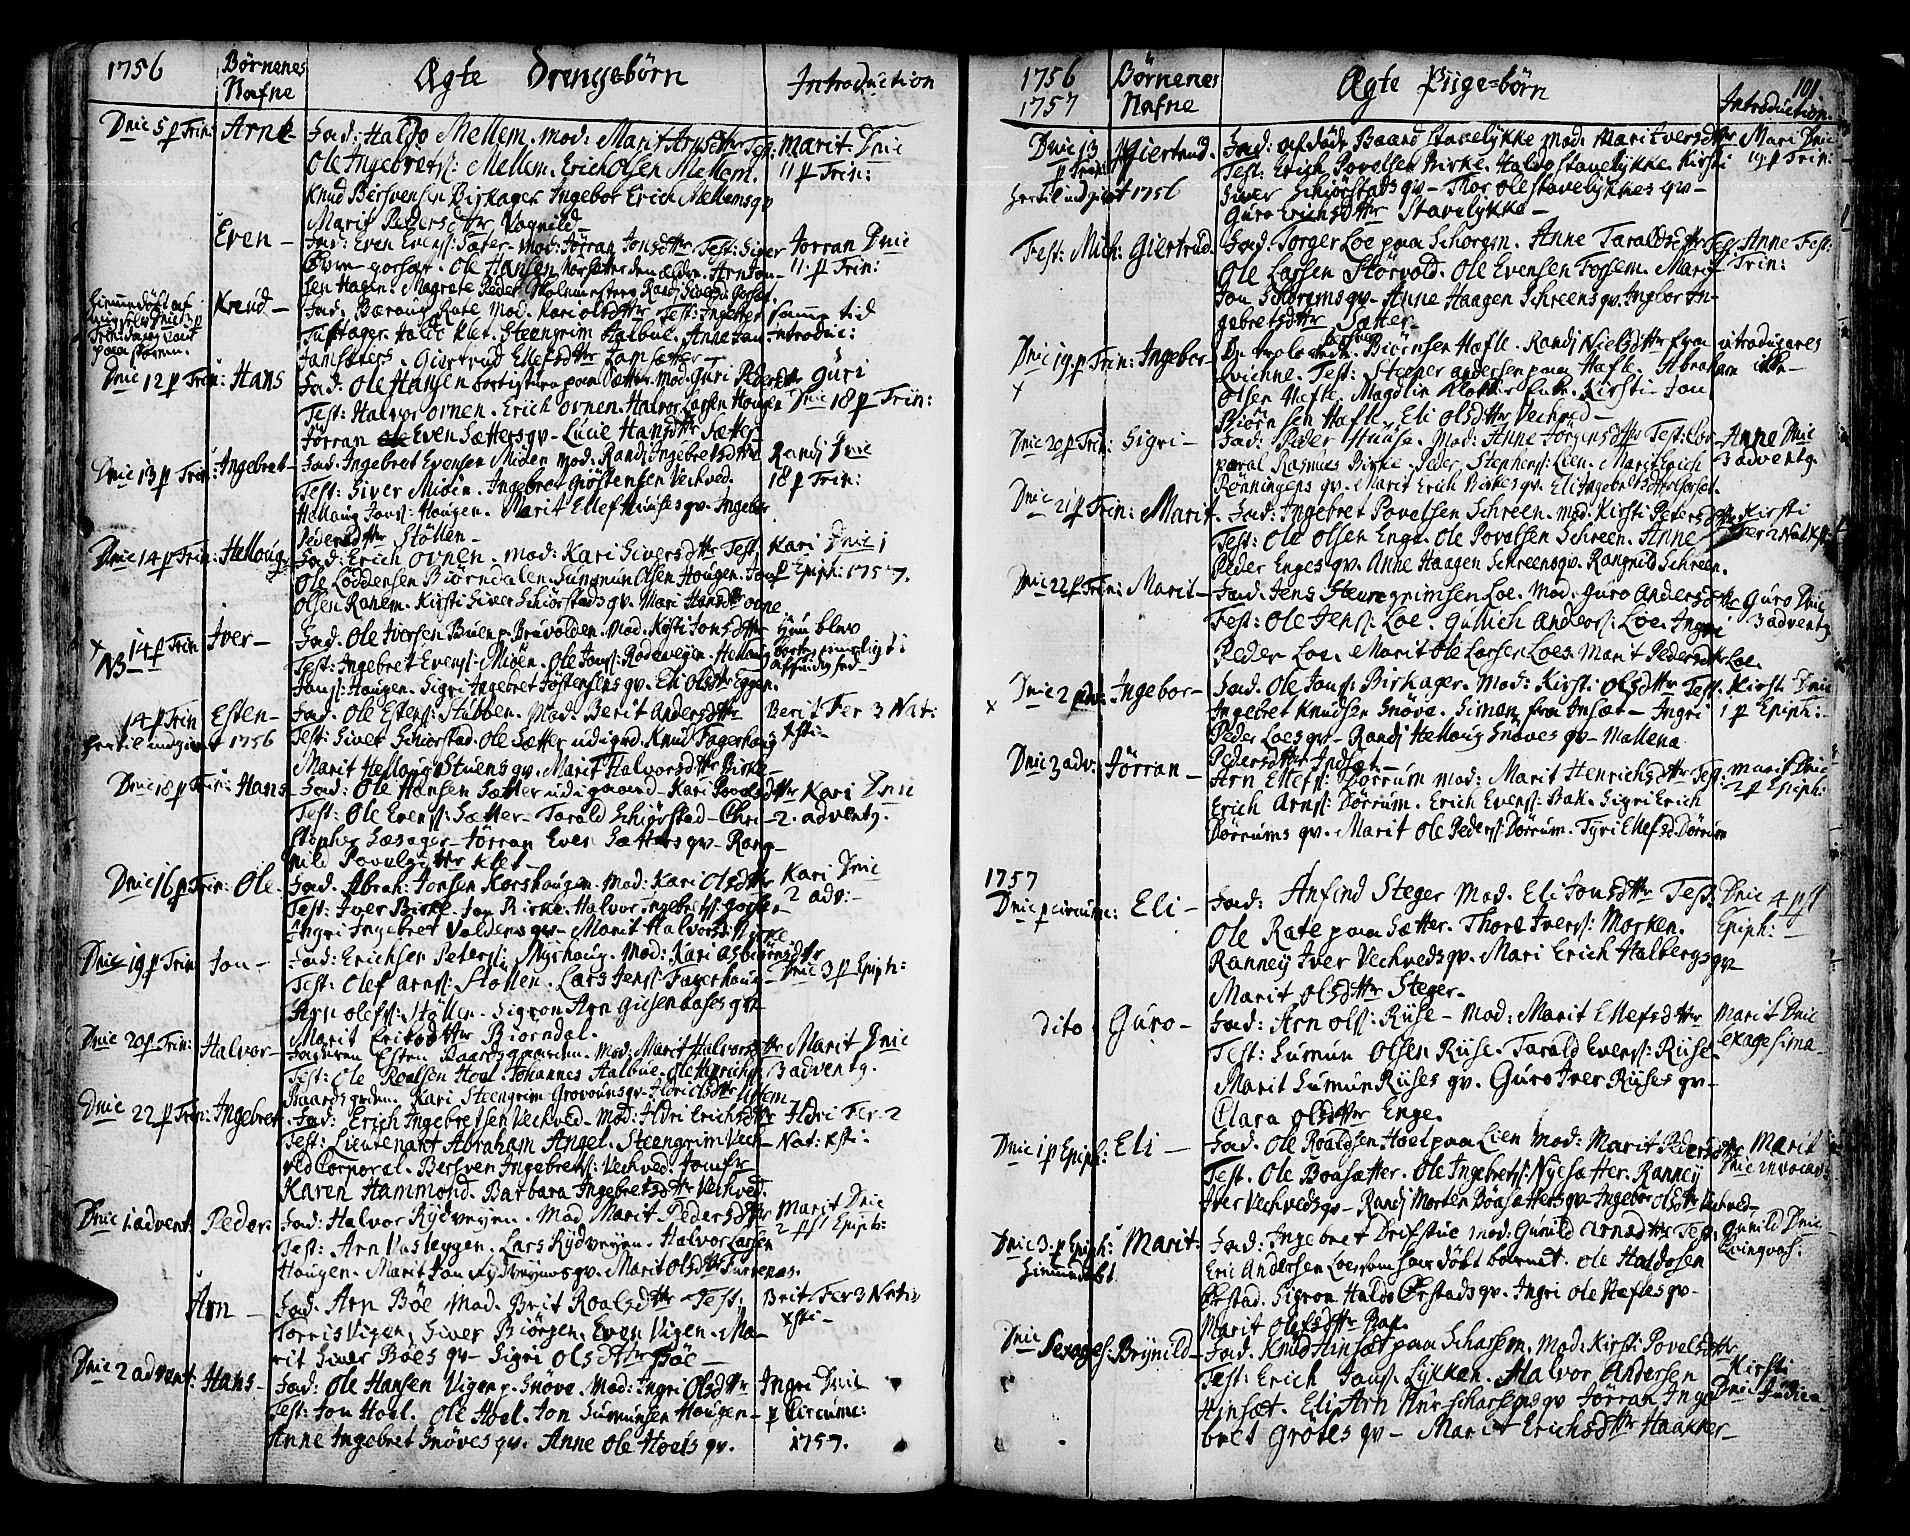 1756
Børnenes
Nafne
Ægte Drengebørn
Introduction
Dnic 5 p Trin: Arne
Fad: Haldo Mellem. mod: Marit
Ole Ingebretss: Mellem. Erich Olsen Mellem.
Knud Bersvensen Birkager Ingebor Erich Mellems qv
Marit Pedersdttr Vognild
Marit Dnic
11 p Trin:
Even
Fad: Even Evenss: Sæter. Mod: Jörran Jonsdttr Test: Siver
Ole Hansen
sen Hagen. Magrete Peder
Jorran Dnic
11. p Trin:
Knud
Fad: Rate Mod. Kari Olsdttr Test: Ingebret
Haldo Klet. Steengrim Halbue. Anne Jon
Giertrud Ellefsdttr
samme tid
introduc:
Dnic 12 p Trin: Hans
Fad: Ole Hansen paa Sætter. Mod. Guri Pedersdttr
Test: Halvor Ovnen. Erich Ovnen. Halvor Larsen Hougen
Jörran Even Sætters qv. Lucie Hansdttr Sætter
Guri
Dnic 18 p Trin:
Dnic 13 p Trin: Ingebret
Fad: Ingebret Evensen Miöen Mod. Randj Ingebretsdttr
Test: Siver Miöen. Ingebret Jöstensen Vechved.
Helloug Jonss: Hougen. Marit Ellef Huuses qv. Ingebor
Pedersdttr Stöllen
Randj Dnic
18 p Trin:
Dnic 14 p Trin: Helloug
Fad: Erich Ovnen. Mod: Kari Siversdttr Test:
Ole Löddensen Biörndalen. Sumun Olsen Hougen. Jon
Olsen Ranem. Kirsti Siver Schiörstads qv. Mari Hansdttr Ovne
Kari Dnic 1
p Epiph: 1757.
x
NB
14 p Trin Iver
Fad. Ole Iversen Buen p. Brüvolden. Mod. Kirsti Jonsdttr
Test: Ingebret Evenss: Miöen. Ole Jonss: Rodevejen. Helloug
Jonss: Hougen. Sigri Ingebret Jöstensens qv. Eli Olsdttr Eggen.
Hun blev
14 p Trin Esten
hertil indgivet 1756
Fad. Ole Estenss: Stubben. Mod. Berit Andersdttr
Test: Siver Schiorstad. Ole Sætter udi gvd. Knud Fagerhoug
Marit Helloug Stuens qv. Marit Halvorsdttr Birke
Berit Fer 3 Nat:
xsti
Dnic 18 p Trin: Hans
Fad: Ole Hansen Sætter udi gaard. Kari Povelsdttr
Test: Ole Evenss: Sætter. Tarald Schiörstad. Chri-
stopher Sæsager. Jörran Even Sætters qv. Rang-
nild Povelsdttr Klet
Kari Dnic
2. adventg.
Dnic 16 p Trin: Ole
Fad. Abrah: Jonsen Korshaugen. Mod: Kari Olsdttr
Test: Iver Birke. Jon Birke. Halvor Ingebretss:
Ingri Ingebret Voldens qv. Marit Halvorsd:
Kari Dnic
2 adv:
Dnic 19 p Trin Jon
Fad: Erichsen Peterss: Myrhoug. Mod: Kari Asbiörnsdttr
Test: Olef Arnss: Stöllen. Lars Jenss: Fagerhoug
Arn Olefss: Stöllen. Sigron Arn Gisenaases qv
Marit Erichsdttr Biorndal.
Dnic 3 p Epiph:
Dnic 20 p Trin: Halvor
Faderen Esten Baardsgaarden. Mod: Marit Halvorsdttr
Test: Ole Roalsen Hoel. Johannes Halbue. Ole Henrichs:
Baardsgrden. Kari Steengrim
Marit Dnic
3 adventg.
Dnic 22 p Trin: Ingebret
Fad: Erich Ingebretsen Vechved. Mod: Ildri Erichsdttr
Test: Lieutenant Abraham Angel. Steengrim Vech-
ved Corporal. Bersven Ingebretss: Vechved. Jomfr
Karen Hammond. Barbara Ingebretsdttr Vechved.
Ildri Fer 2
Nat: xsti
Dnic 1. advent. Peder.
Fad: Halvor Rydvejen. Mod Marit Pedersdttr
Test: Arn Vasleggen. Lars Rydvejen. Halvor Larsen
Hougen. Marit Jon Rydvejens qv. Marit Olsdttr Furrenas.
Marit Dnic
2 pst Epiph:
Arn
Fad. Arn Böe Mod. Brit Roalsdttr Test:
Torris Vigen, Siver Biörgen. Even Vigen. Ma-
rit Siver Böes qv. Sigri Olsdttr Böe
Brit Fer 3 Nativ
xsti
Dnic 2 advent: Hans
Fad: Ole Hansen Vigen p. Snöve. Mod: Ingri Olsdttr
Test: Jon Hoel. Ole Hoel. Jon Sumunsen Hougen
Anne Ingebret Snöves qv. Anne Ole Hoels qv.
Ingri Dnic
p Circumc:
1757.
1756
1757
Børnenes
Nafne
Ægte Piige-børn
101.
Introduction.
Dnic 13
p Trin: Giertrud.
hertil indgivet 1756
Fad: afdöde Baard Stavelykke Mod Marit Iversdttr
Test: Erich Povelsen Birke. Halvo Stavelykke. Kirsti
Siver Schiörstads qv. Thor Ole Stavelykkes qv
Guro Erichsdttr Stavelykke
Mari Dnic
19 p Trin:
Fest: Mich: Giertrud.
Fad. Torger Loe paa Schorem. Anne Taraldsdttr Test:
Ole Larsen Störvold. Ole Evensen Fossem. Marit
Jon Schorems qv. Anne Haagen Schreens qv. Ingbor In-
gebretsdttr Sætter.
Anne Fest:
Trin:
Dnic 19. p Trin: Ingebor
x
Biörnsen Hæfle. Randj Nielsdttr fra
Qvichne. Test: Stepner Andersen paa Hafle. Abraham
Olsen Hafle. Magdlin Kirsti Jon
Biörnsen Hafle. Eli Olsdttr Vechved
introduceres
ikke
Dnic 20 p Trin: Sigri
Fad: Peder Huuse. Mod: Anne Jörgensdttr Test: Cor-
poral Rasmus Birke. Peder Stephenss: Lien. Marit Erich
Rönningens qv. Marit Erich Birkes qv. Eli Ingebretsdttr
Anne Dnic
3 adventg.
Dnic 21 p Trin: Marit
Fad: Ingebret Povelsen Schreen. Mod: Kirsti Petersdttr
Test: Ole Olsen Enge. Ole Povelsen Schreen. Anne
Peder Enges qv. Anne Haagen Schreens qv. Rangnild Schreen.
Kirsti
Fer 2 Nat Xsti
Dnic 22 p Trin: Marit
Fad. Jens Steengrimsen Loe. Mod. Guro Andersdttr
Test: Ole Jenss: Loe. Gullich Anderss: Loe. Ingri
Peder Loe. Marit Ole Larsen Loes. Marit Pedersdttr Loe.
Guro Dnic
3 adventg
x Dnic 2 p adv: Ingebor
Fad. Ole Jonss: Birkager. Mod: Kirsti Olsdttr Test.
Ingebret Knudsen Snöve. Simen fra Insæt. Ingri
Peder Loes qv. Randj Helloug Snöves qv. Mallena
Pedersdttr Indsæt
Kirsti Dnic
1 p Epiph:
Dnic 3 adv: Jörran
Arn Ellefss: Dörrum Mod: Marit Henrichsdttr Test:
Erich Arnss: Dörrum. Erich Evenss: Bak. Sigri Erich
Dörrums qv. Marit Ole Pederss: Dörrum. Tyri Ellefsd Dörrum
Marit Dnic
2 p Epiph:
1757
Dnic p Circumc: Eli
Fad: Anfind Steger Mod. Eli Jonsdttr Test:
Ole Rate paa Sætter. Thore Iverss: Morken.
Ranney Iver Vechveds qv. Mari Erich Halbergs qv
Marit Olsdttr Steger.
Dnic 4 pst
Epiph:
dito Guro
Fad: Arn Olss: Riise. Mod: Marit Ellefsdttr
Test: Sumun Olsen Riise. Tarald Evenss: Riise
Marit Sumun Riises qv. Guro Iver Riises qv
Clara Olsdttr Enge.
Marit Dnic
exagesima
Dnic 1 p Epiph: Eli
Fad. Ole Roaldsen Hoel paa Lien Mod: Marit Pedersdttr
Test. Ole Boasætter. Ole Ingebretss: Nyesætter. Ranney
Iver Vechveds qv. Randj Morten Böasætters qv. Ingebor Olsdttr Vechved
Marit
Dnic Invocavit
Dnic 3. p Epiph: Marit
Hiemmedöbt
Fad: Ingebret Drifstue Mod: Gunild Arnsdttr Test:
Eric Andersen Loe, som har döbt barnet. Ole Haldosen
Örstad. Sigron Haldo Örstads qv. Ingri Ole Hæfles qv
Marit Olefsdttr Bak.
Gunild Dnic
Qvinqvag.
Dnic Sexages: Brÿnild
Fad. Knud Hinsæt paa Scharsem. Mod: Kirsti Povelsdttr
Test: Erich Jonss. Lykken. Halvor Andersen
Hinsæt. Eli Arn Nurscharsems qv Jörran Inge-
bret Grötes qv. Marit Erichsdttr Haaker
Kirsti
Dnic Judica